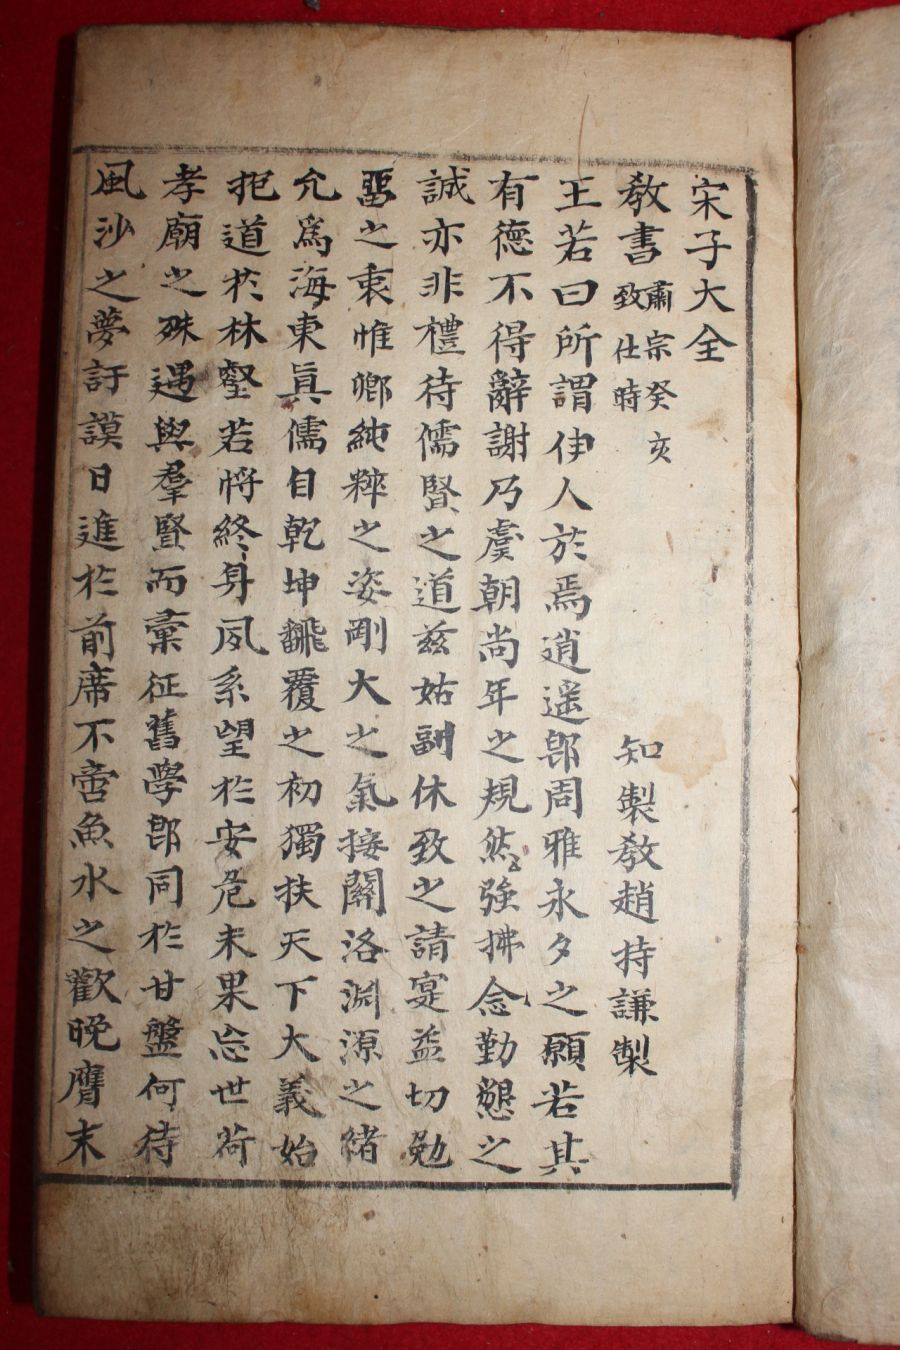 宋子大全
教書 肅宗癸亥致仕時 知製教趙持謙製
王若曰所謂伊人於焉逍遥卽周雅永夕之願若其
有德不得辭謝乃虞朝尚年之規然強拂念勤懇之
誠亦非禮待儒賢之道茲姑副休致之請寔益切勉
畱之衷惟卿純粹之姿剛大之氣接關洛淵源之緖
允爲海東眞儒自乾坤飜覆之初獨扶天下大義始
抱道於林壑若将終身夙系望於安危未果忘世荷
孝廟之殊遇與羣賢而彙征舊學卽同於甘盤何待
風沙之夢訏謨日進於前席不啻魚水之歡晚膺末